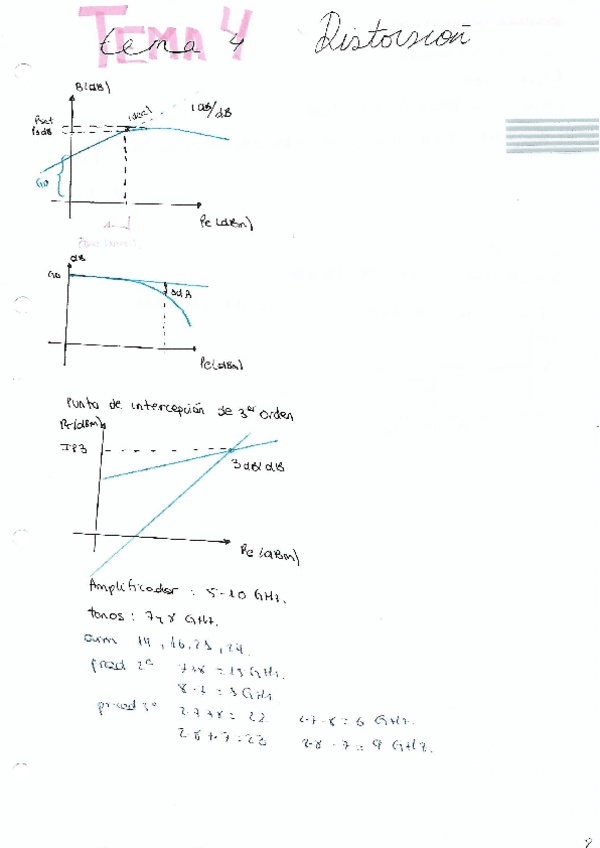 TEMA 4
tema 4 Distorsión
Ps (dBm)
Psat
ideal
1dB/dB
G0
Pe (dBm)
dB
G0
Pe (dBm)
Punto de intercepción de 3er orden
IP3
3 dB/dB
Pe (dBm)
Amplificador: 5-10 GHz.
tonos: 7 y 8 GHz.
arm 14, 16, 21, 24.
prod 2º 7+8 = 15 GHz.
prod 3º 2·7+8 = 22 2·7-8 = 6 GHz.
2·8+7 = 23 2·8-7 = 9 GHz.